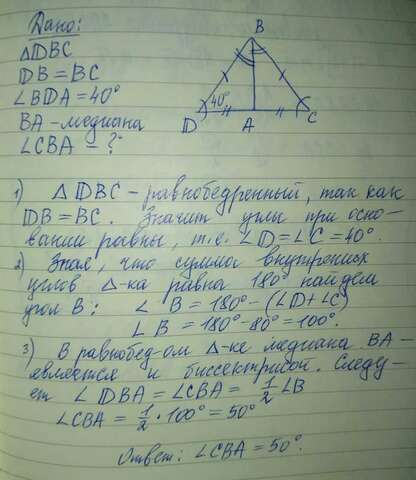 Дано:
△DBC
DB = BC
∠BDA = 40°
BA - медиана
∠CBA - ?
B
40°
D
A
C
1) △ DBC - равнобедренный, так как
DB = BC. Значит углы при осно-
вании равны, т.е. ∠D = ∠C = 40°.
2) Зная, что сумма внутренних
углов △-ка равна 180° найдем
угол B: ∠ B = 180° - (∠D + ∠C)
∠ B = 180° - 80° = 100°.
3) В равнобед-ом △-ке медиана BA -
является и биссектрисой. Следу-
ет ∠ DBA = ∠CBA = 1/2 ∠B
∠CBA = 1/2 · 100° = 50°
Ответ: ∠CBA = 50°.